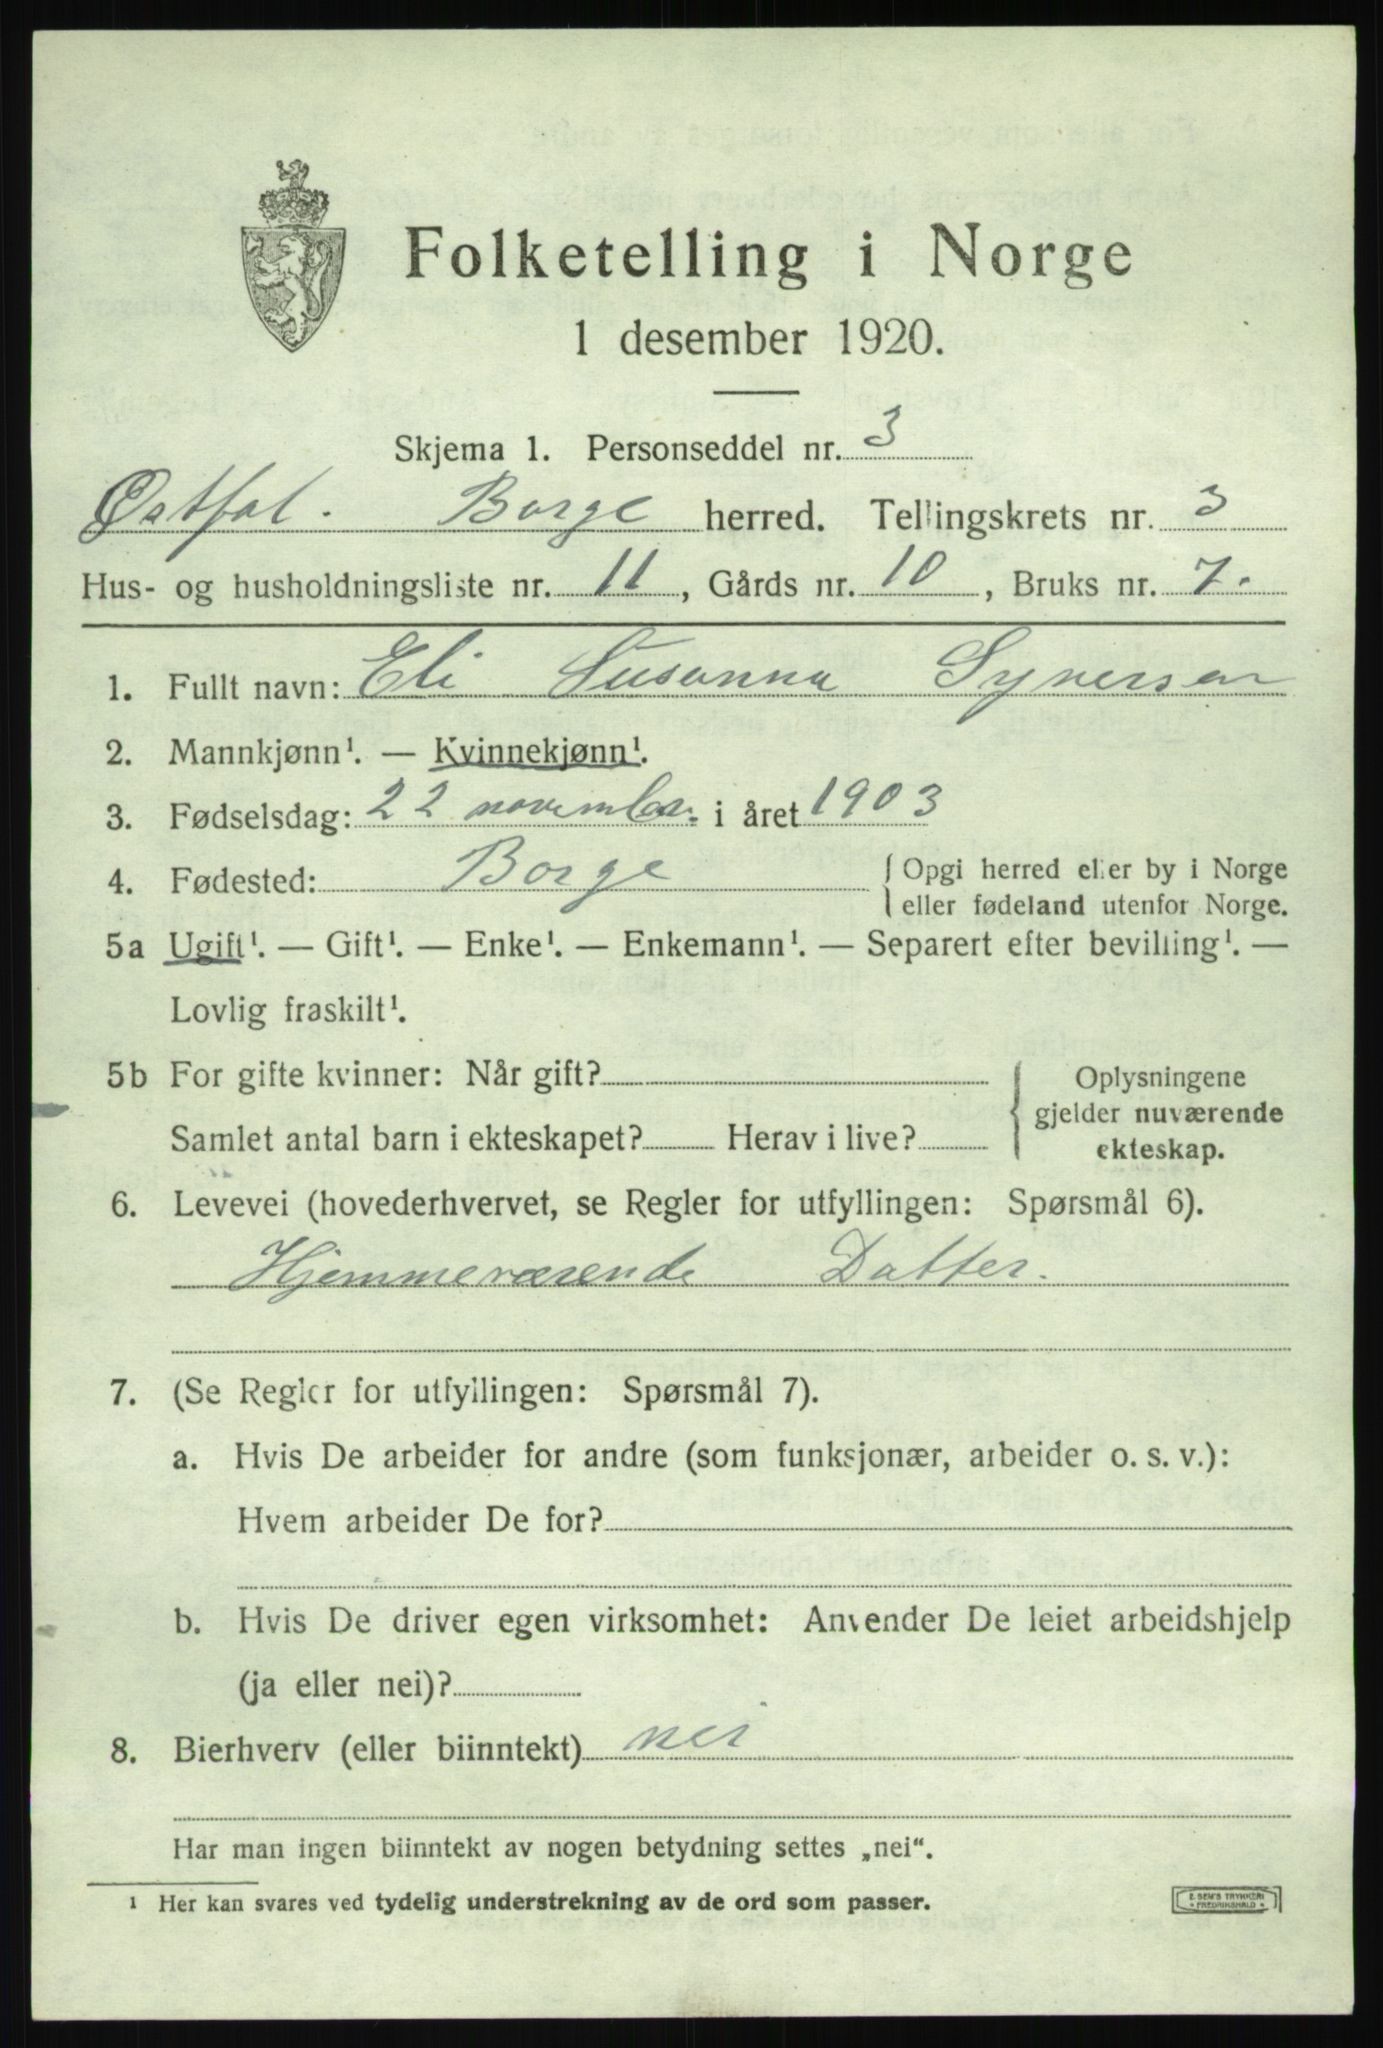 Folketelling i Norge
1 desember 1920.
Skjema 1. Personseddel nr. 3
Østfol. Borge herred. Tellingskrets nr. 3
Hus- og husholdningsliste nr. 11, Gårds nr. 10, Bruks nr. 7.
1. Fullt navn: Eli Susanna Syversen
2. Mannkjønn¹. — Kvinnekjønn¹.
3. Fødselsdag: 22 november. i året 1903
4. Fødested: Borge { Opgi herred eller by i Norge
eller fødeland utenfor Norge.
5a Ugift¹. — Gift¹. — Enke¹. — Enkemann¹. — Separert efter bevilling¹. —
Lovlig fraskilt¹.
5b For gifte kvinner: Når gift?
Samlet antal barn i ekteskapet? Herav i live?
{ Oplysningene
gjelder nuværende
ekteskap.
6. Levevei (hovederhvervet, se Regler for utfyllingen: Spørsmål 6).
Hjemmeværende Datter.
7. (Se Regler for utfyllingen: Spørsmål 7).
a. Hvis De arbeider for andre (som funksjonær, arbeider o. s. v.):
Hvem arbeider De for?
b. Hvis De driver egen virksomhet: Anvender De leiet arbeidshjelp
(ja eller nei)?
8. Bierhverv (eller biinntekt) nei
Har man ingen biinntekt av nogen betydning settes „nei“.
¹ Her kan svares ved tydelig understrekning av de ord som passer.
E. SEM'S TRYKKERI
* FREDRIKSHALD *